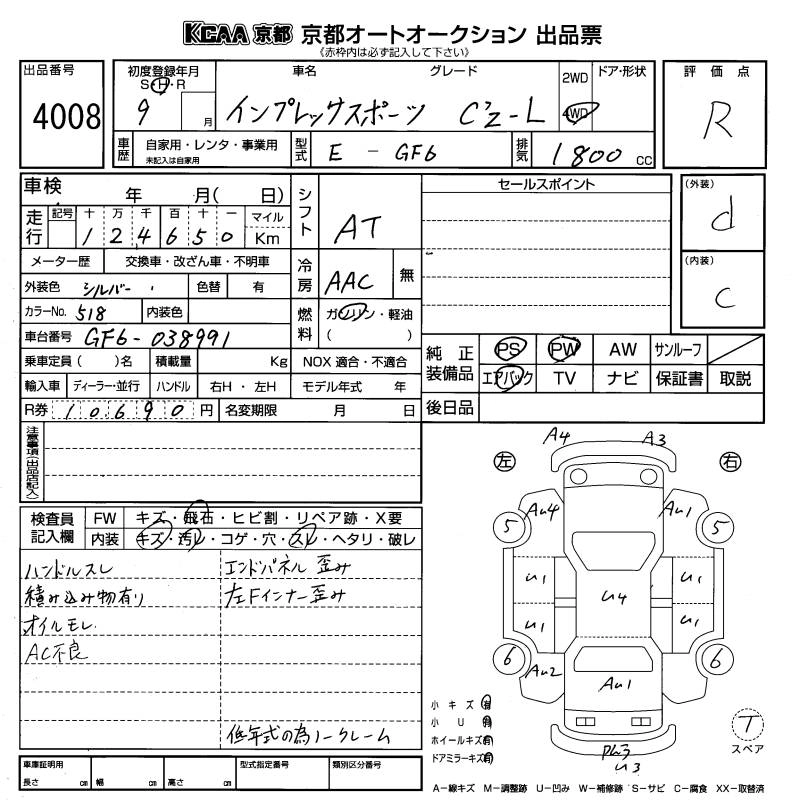 KCAA 京都 京都オートオークション 出品票
《赤枠内は必ず記入して下さい》
出品番号
4008
初度登録年月
S・H・R
9 月
車名 グレード
インプレッサスポーツ C'z-L
2WD
4WD
ドア・形状
評価点
R
車歴
自家用・レンタ・事業用
未記入は自家用
型式
E - GF6
排気
1800 cc
車検 年 月( 日)
走行
記号 十 万 千 百 十 一 マイル
1 2 4 6 5 0 Km
メーター歴 交換車・改ざん車・不明車
外装色 シルバー 色替 有
カラーNo. 518 内装色
車台番号 GF6-038991
乗車定員( )名 積載量 Kg NOX 適合・不適合
輸入車 ディーラー・並行 ハンドル 右H・左H モデル年式 年
R券 10690 円 名変期限 月 日
シフト
AT
冷房
AAC 無
燃料
ガソリン・軽油
( )
セールスポイント
(外装)
d
(内装)
C
純正装備品
PS PW AW サンルーフ
エアバック TV ナビ 保証書 取説
後日品
注意事項(出品店記入)
検査員記入欄
FW キズ・飛石・ヒビ割・リペア跡・X要
内装 キズ・汚レ・コゲ・穴・スレ・ヘタリ・破レ
ハンドルスレ エンドパネル 歪み
積み込み物有り 左Fインナー歪み
オイルモレ
AC不良
低年式の為ノークレーム
車庫証明用
長さ cm 幅 cm 高さ cm
型式指定番号
類別区分番号
A4 A3
左 右
Au4 Au1
5 5
u1 u1
u4
u1 u1
6 6
Au2 Au1
小キズ 有
小U 有
ホイールキズ 有
ドアミラーキズ 有
T
スペア
u3
A-線キズ M-調整跡 U-凹み W-補修跡 S-サビ C-腐食 XX-取替済